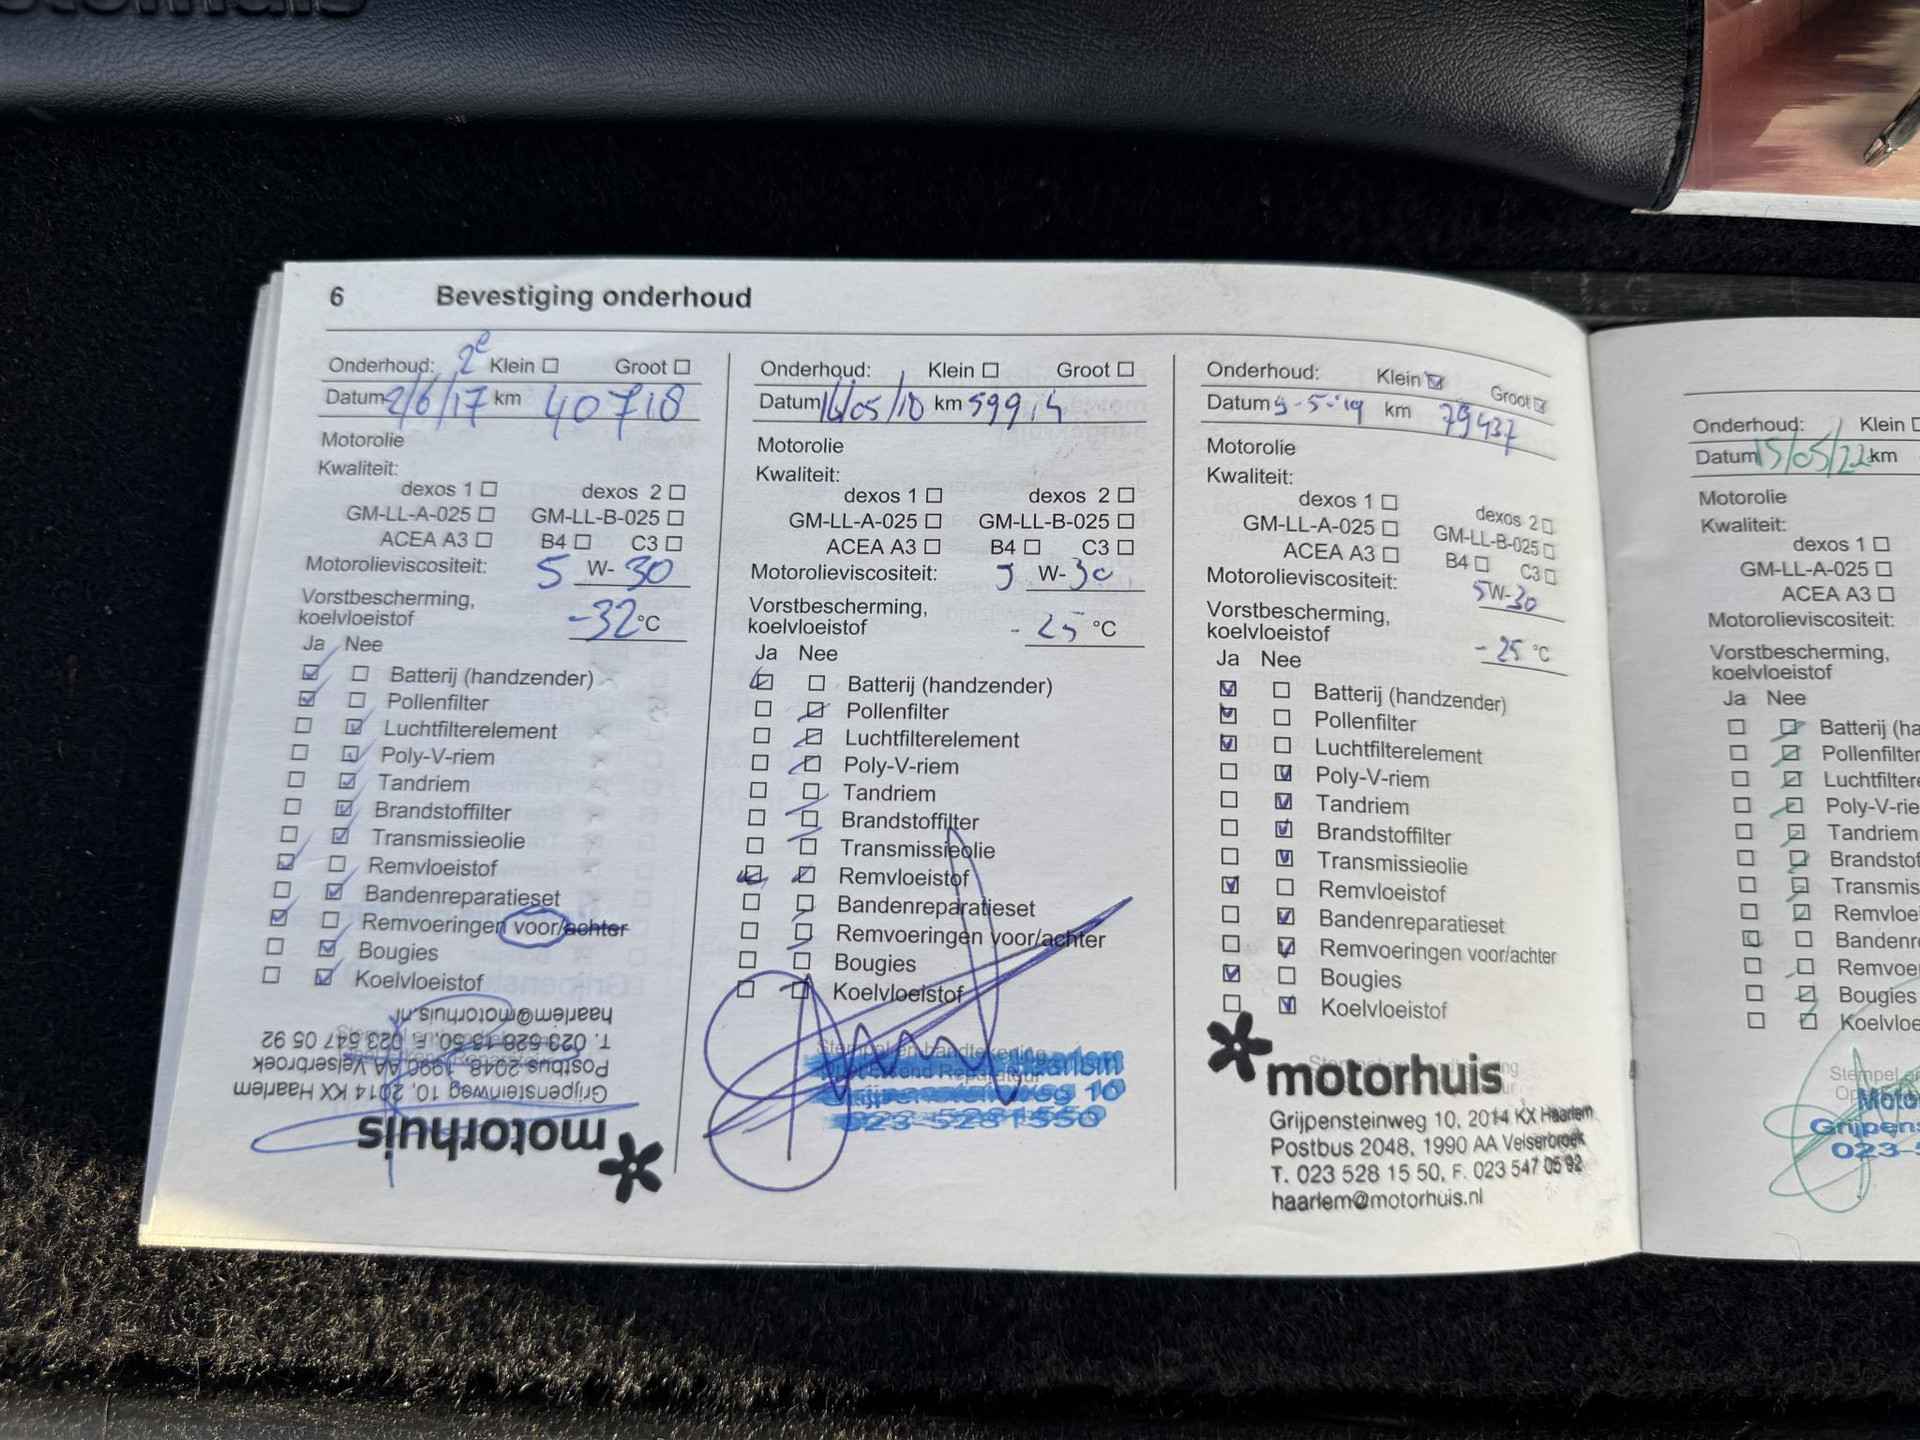 6 Bevestiging onderhoud
Onderhoud: 2e Klein Groot
Datum 2/6/17 km 40718
Motorolie
Kwaliteit:
dexos 1 dexos 2
GM-LL-A-025 GM-LL-B-025
ACEA A3 B4 C3
Motorolieviscositeit: 5 W- 30
Vorstbescherming,
koelvloeistof -32 °C
Ja Nee
Batterij (handzender)
Pollenfilter
Luchtfilterelement
Poly-V-riem
Tandriem
Brandstoffilter
Transmissieolie
Remvloeistof
Bandenreparatieset
Remvoeringen voor/achter
Bougies
Koelvloeistof
motorhuis
Grijpensteinweg 10, 2014 KX Haarlem
Postbus 2048, 1990 AA Velserbroek
T. 023 528 15 50, F. 023 547 05 92
haarlem@motorhuis.nl
Onderhoud: Klein Groot
Datum 16/05/18 km 599
Motorolie
Kwaliteit:
dexos 1 dexos 2
GM-LL-A-025 GM-LL-B-025
ACEA A3 B4 C3
Motorolieviscositeit: 5 W- 30
Vorstbescherming,
koelvloeistof - 25 °C
Ja Nee
Batterij (handzender)
Pollenfilter
Luchtfilterelement
Poly-V-riem
Tandriem
Brandstoffilter
Transmissieolie
Remvloeistof
Bandenreparatieset
Remvoeringen voor/achter
Bougies
Koelvloeistof
Stempel en handtekening
Haarlem
Grijpensteinweg 10
023-5281550
Onderhoud: Klein Groot
Datum 9-5-'19 km 79437
Motorolie
Kwaliteit:
dexos 1 dexos 2
GM-LL-A-025 GM-LL-B-025
ACEA A3 B4 C3
Motorolieviscositeit: 5W-30
Vorstbescherming,
koelvloeistof - 25 °C
Ja Nee
Batterij (handzender)
Pollenfilter
Luchtfilterelement
Poly-V-riem
Tandriem
Brandstoffilter
Transmissieolie
Remvloeistof
Bandenreparatieset
Remvoeringen voor/achter
Bougies
Koelvloeistof
motorhuis
Grijpensteinweg 10, 2014 KX Haarlem
Postbus 2048, 1990 AA Velserbroek
T. 023 528 15 50, F. 023 547 05 92
haarlem@motorhuis.nl
Onderhoud: Klein
Datum 15/05/22 km
Motorolie
Kwaliteit:
dexos 1
GM-LL-A-025
ACEA A3
Motorolieviscositeit:
Vorstbescherming,
koelvloeistof
Ja Nee
Batterij (ha
Pollenfilter
Luchtfiltere
Poly-V-rie
Tandriem
Brandstof
Transmis
Remvloe
Bandenr
Remvoer
Bougies
Koelvloe
Stempel en
Moto
Grijpens
023-5